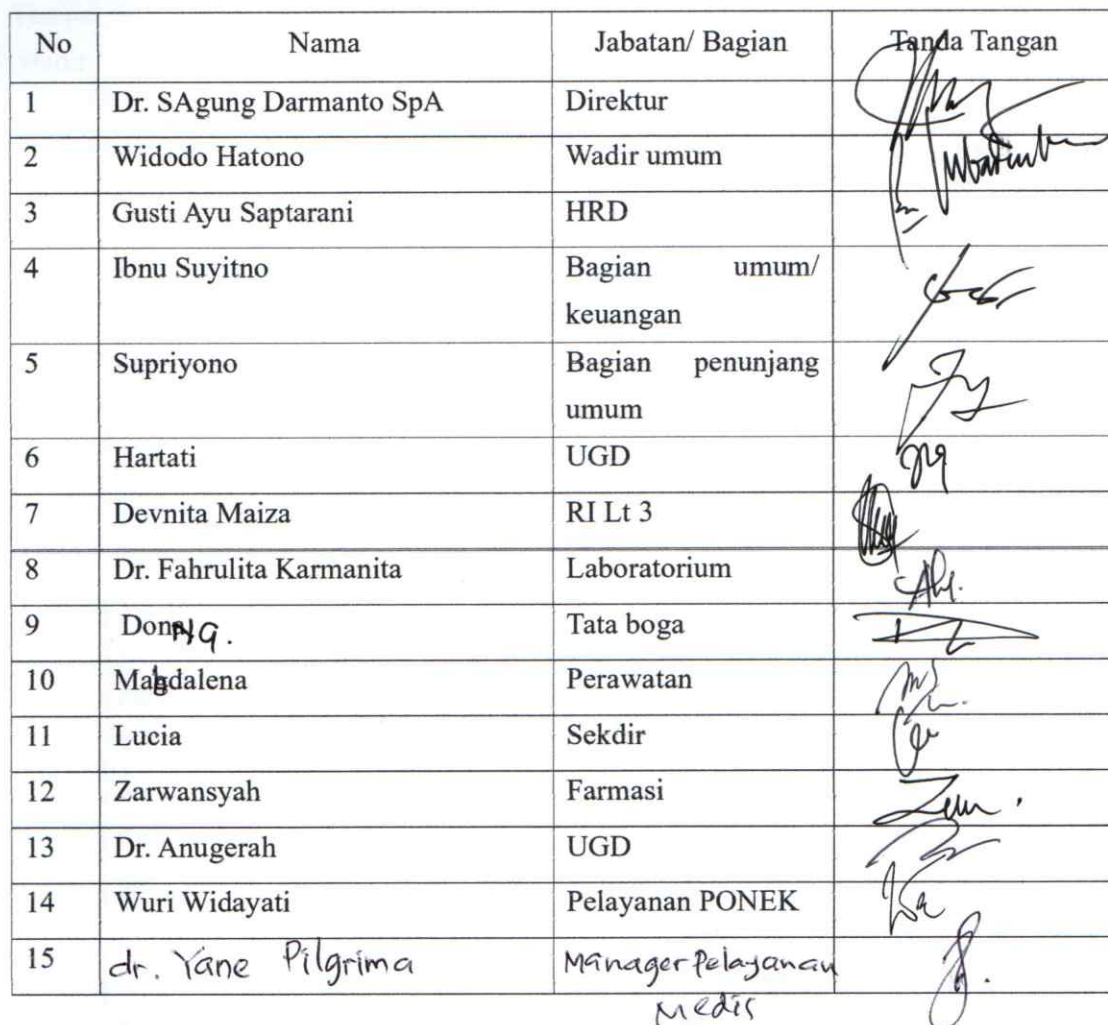 No Nama Jabatan/ Bagian Tanda Tangan
1 Dr. SAgung Darmanto SpA Direktur
2 Widodo Hatono Wadir umum
3 Gusti Ayu Saptarani HRD
4 Ibnu Suyitno Bagian umum/
keuangan
5 Supriyono Bagian penunjang
umum
6 Hartati UGD
7 Devnita Maiza RI Lt 3
8 Dr. Fahrulita Karmanita Laboratorium
9 Tata boga
10 Magdalena Perawatan
11 Lucia Sekdir
12 Zarwansyah Farmasi
13 Dr. Anugerah UGD
14 Wuri Widayati Pelayanan PONEK
15 dr. Yane Pilgrima Manager Pelayanan
Medis